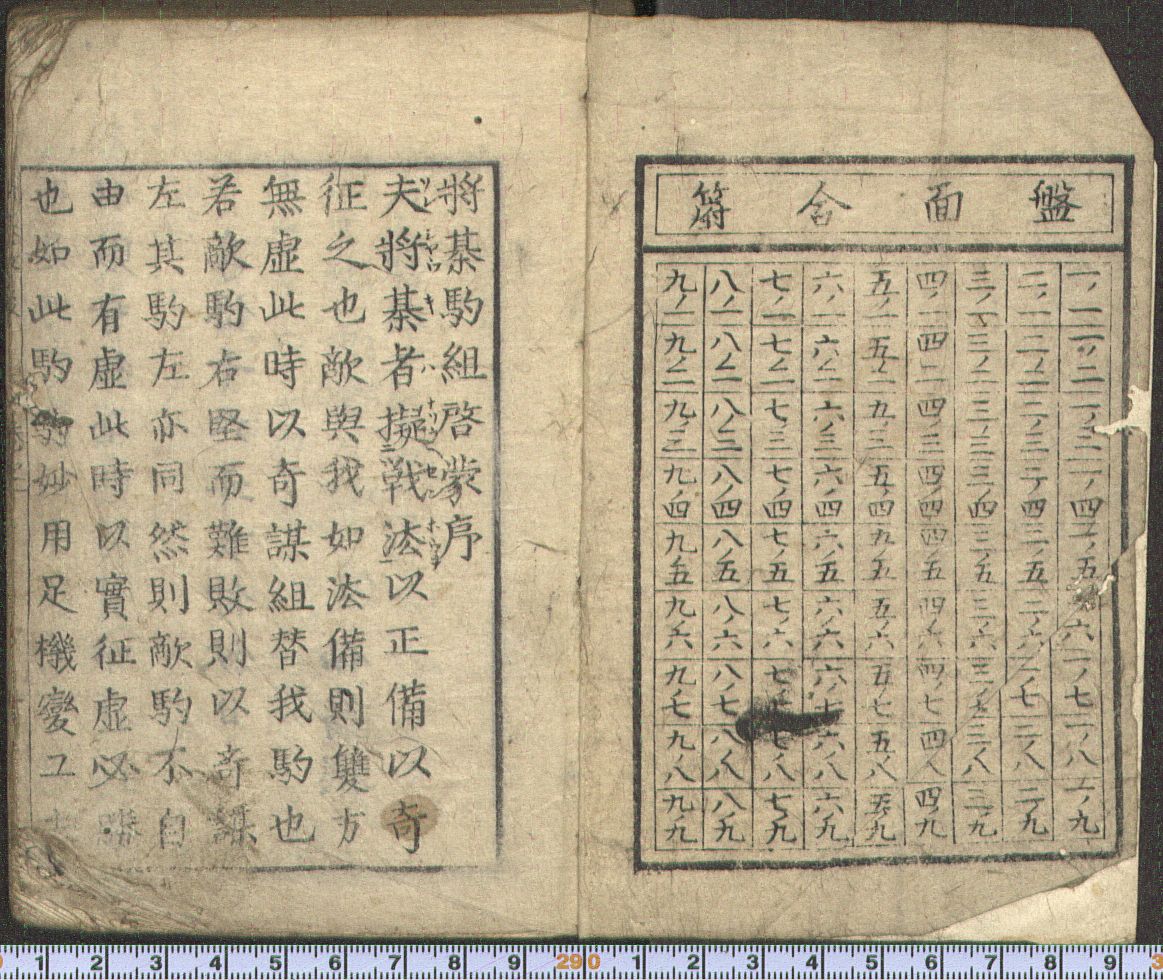 盤面合符
一ノ一 一ノ二 一ノ三 一ノ四 一ノ五 一ノ六 一ノ七 一ノ八 一ノ九
二ノ一 二ノ二 二ノ三 二ノ四 二ノ五 二ノ六 二ノ七 二ノ八 二ノ九
三ノ一 三ノ二 三ノ三 三ノ四 三ノ五 三ノ六 三ノ七 三ノ八 三ノ九
四ノ一 四ノ二 四ノ三 四ノ四 四ノ五 四ノ六 四ノ七 四ノ八 四ノ九
五ノ一 五ノ二 五ノ三 五ノ四 五ノ五 五ノ六 五ノ七 五ノ八 五ノ九
六ノ一 六ノ二 六ノ三 六ノ四 六ノ五 六ノ六 六ノ七 六ノ八 六ノ九
七ノ一 七ノ二 七ノ三 七ノ四 七ノ五 七ノ六 七ノ七 七ノ八 七ノ九
八ノ一 八ノ二 八ノ三 八ノ四 八ノ五 八ノ六 八ノ七 八ノ八 八ノ九
九ノ一 九ノ二 九ノ三 九ノ四 九ノ五 九ノ六 九ノ七 九ノ八 九ノ九
將棊駒組啓蒙序
夫將棊者擬戦法以正備以奇
征之也敵與我如法備則雙方
無虚此時以奇謀組替我駒也
若敵駒右堅而難敗則以奇謀
左其駒左亦同然則敵駒不自
由而有虚此時以實征虚必勝
也如此駒妙用足機變工
0 1 2 3 4 5 6 7 8 9 290 1 2 3 4 5 6 7 8 9 3